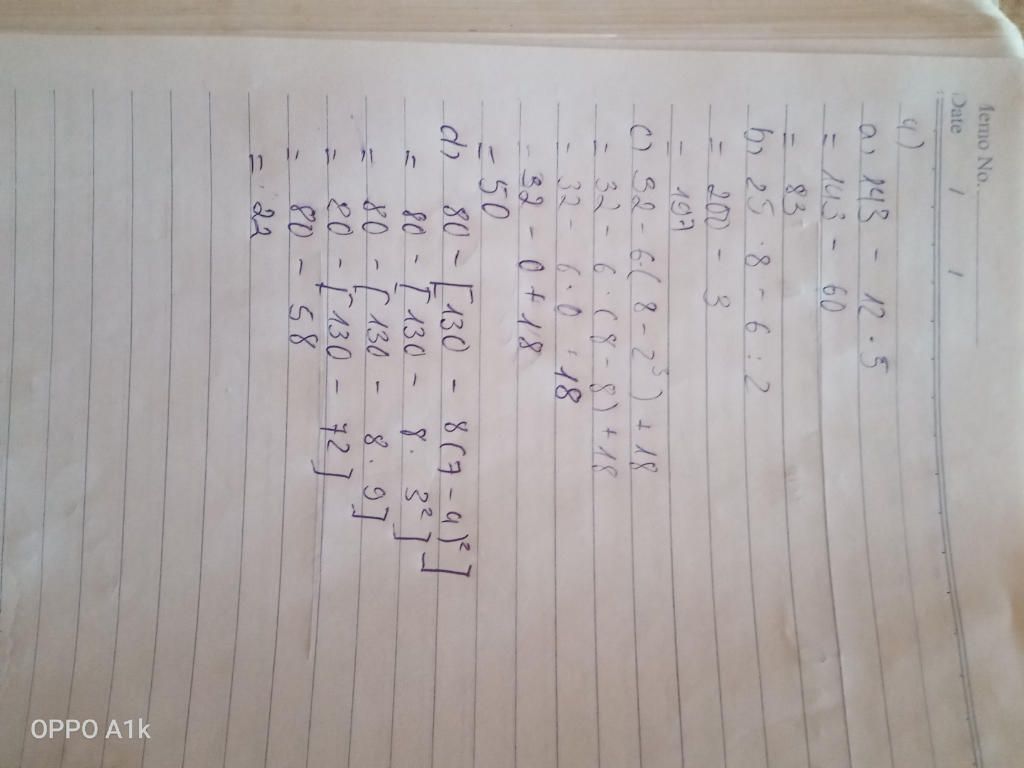 Memo No.
Date / /
4)
a, 143 - 12 . 5
= 143 - 60
= 83
b, 25 . 8 - 6 : 2
= 200 - 3
= 197
c, 32 - 6(8 - 2³) + 18
= 32 - 6 . (8 - 8) + 18
= 32 - 6 . 0 + 18
= 32 - 0 + 18
= 50
d, 80 - [130 - 8(7 - 4)²]
= 80 - [130 - 8 . 3²]
= 80 - [130 - 8 . 9]
= 80 - [130 - 72]
= 80 - 58
= 22
OPPO A1k